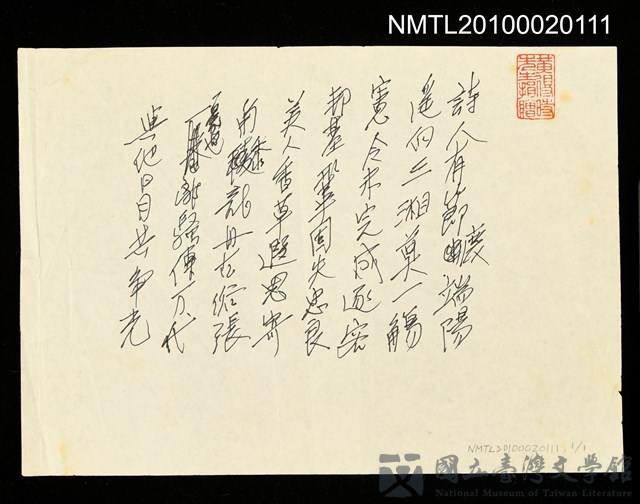 NMTL20100020111
詩人有節慶端陽
遙向三湘奠一觴
憲令未完成逐客
邦基鞏固失忠良
美人香草遐思寄
角黍龍舟古俗張
一卷離騷傳万代
與他日月共爭光
黃得時先生捐贈
NMTL20100020111, 1/1
國立臺灣文學館
National Museum of Taiwan Literature